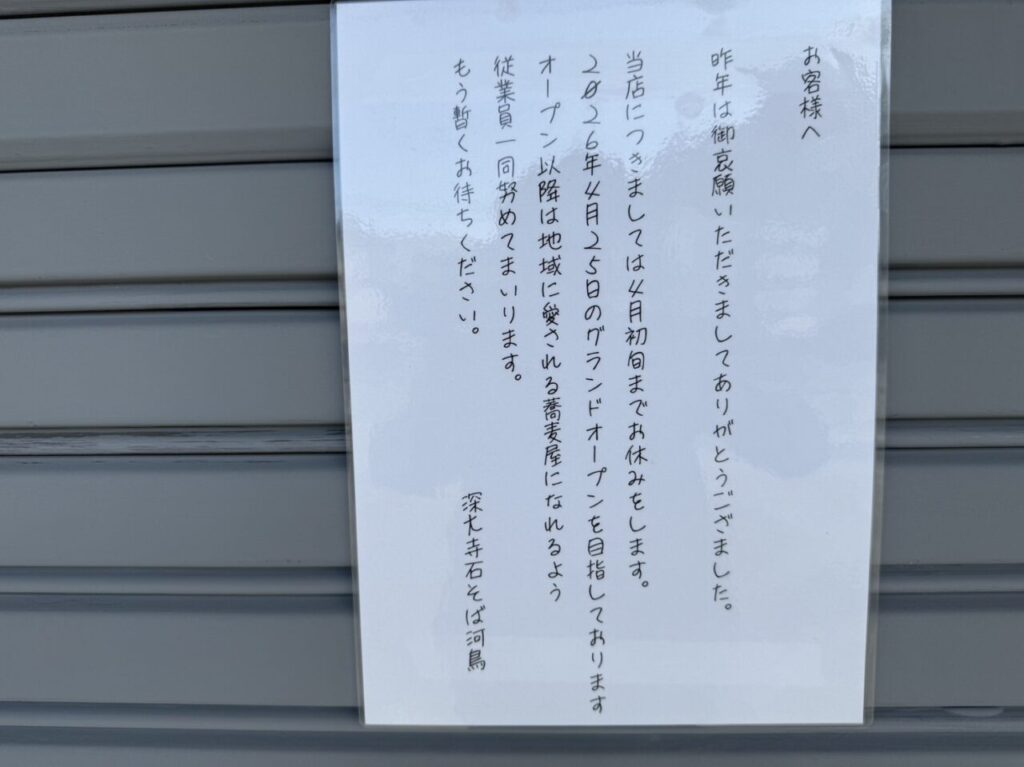 お客様へ
昨年は御哀願いただきましてありがとうございました。
当店につきましては4月初旬までお休みをします。
2026年4月25日のグランドオープンを目指しております
オープン以降は地域に愛される蕎麦屋になれるよう
従業員一同努めてまいります。
もう暫くお待ちください。
深大寺石そば河鳥